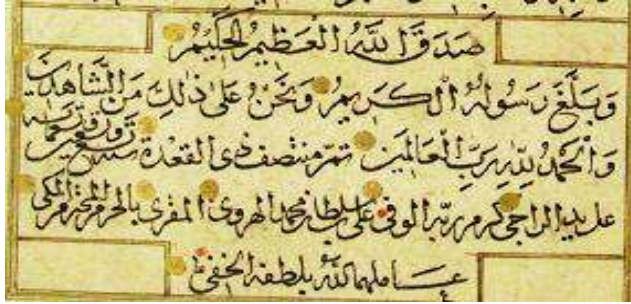 صَدَقَ اللهُ الْعَظِيمُ الْحَكِيمُ
وَبَلَّغَ رَسُولُهُ الْكَرِيمُ وَنَحْنُ عَلٰى ذٰلِكَ مِنَ الشَّاهِدِينَ
وَالْحَمْدُ لِلّٰهِ رَبِّ الْعَالَمِينَ تم منتصف ذي القعدة
على يد الراجي كرم ربه الوفي علي بن سلطان محمد الهروي المقري بالحرم المحترم المكي
عاملهما الله بلطفه الخفي